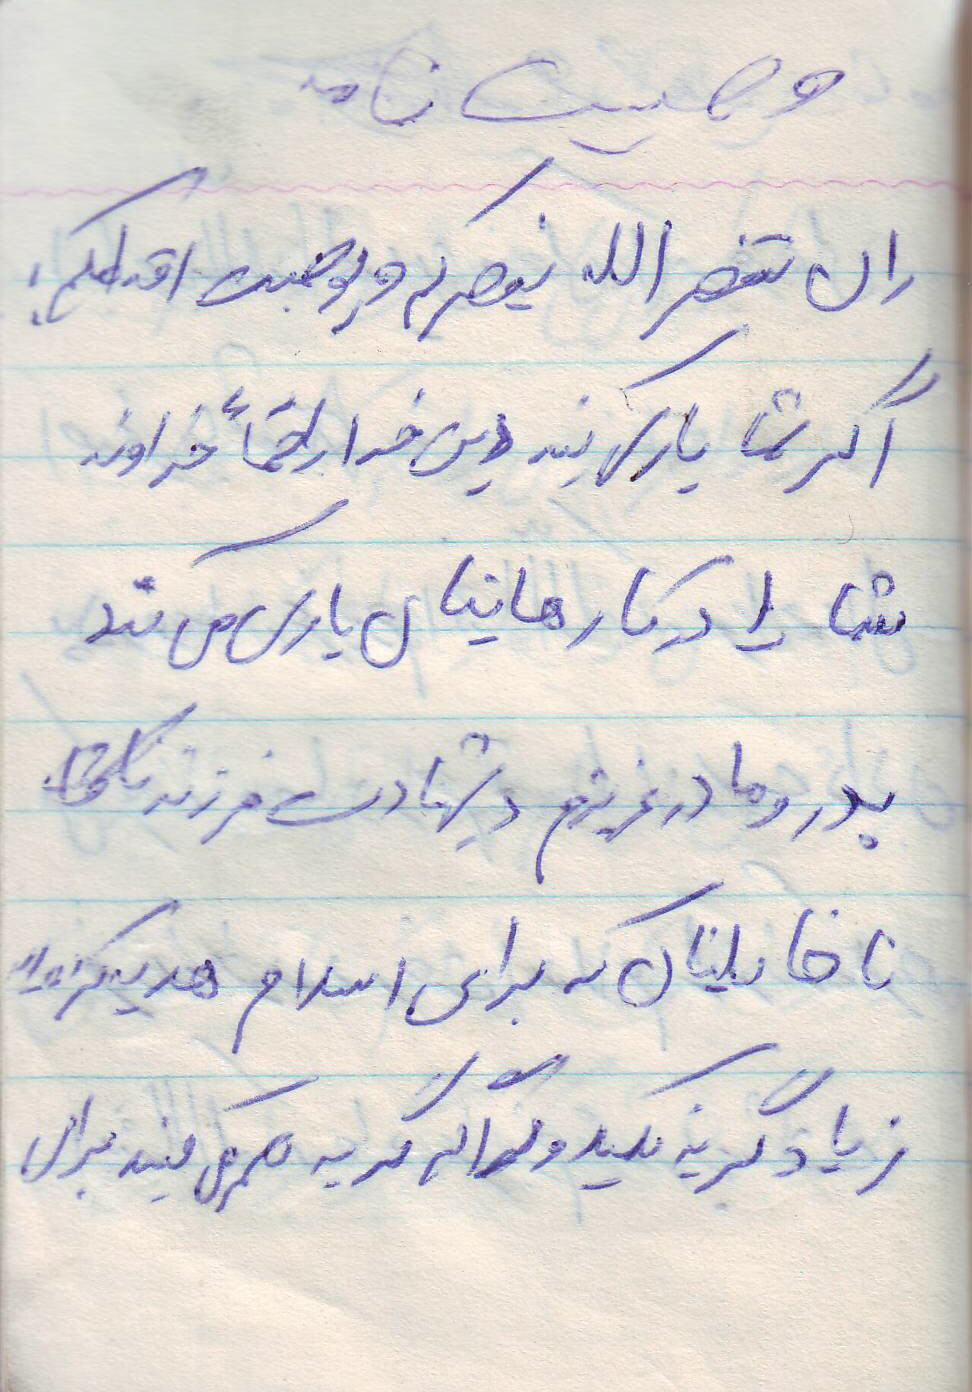 وصیت نامه
ران تنصر الله ینصرکم و یوصبت اقدامکم؛
اگر شما یاری کنید دین خدا را حتماً خداوند
شما را در کارهایتان یاری می کند
پدر و مادر عزیزم در شهادت فرزند
ناقابلتان که برای اسلام هدیه کرده اید
زیاد گریه نکنید و اگر گریه هم می کنید برای